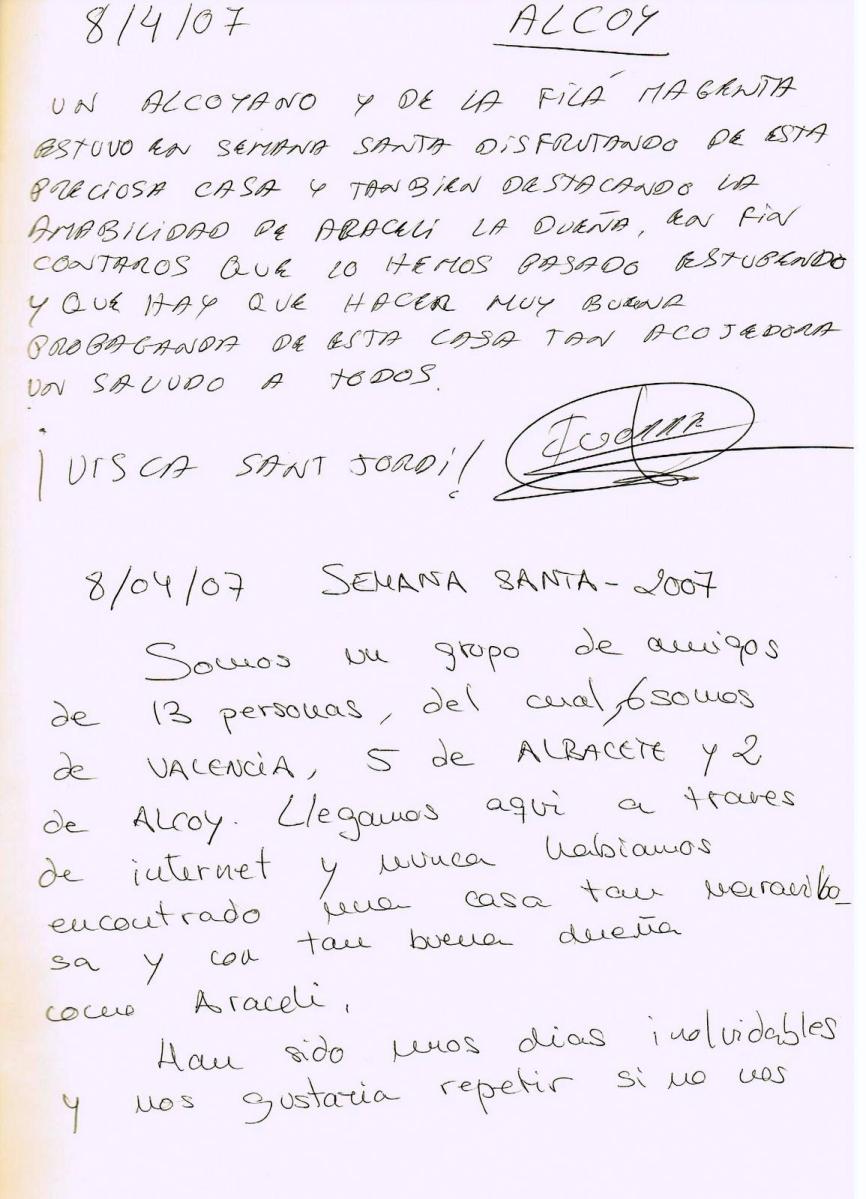 8/4/07 ALCOY
UN ALCOYANO Y DE LA FILÁ MAGENTA
ESTUVO EN SEMANA SANTA DISFRUTANDO DE ESTA
PRECIOSA CASA Y TANBIEN DESTACANDO LA
AMABILIDAD DE ARACELI LA DUEÑA, EN FIN
CONTAROS QUE LO HEMOS PASADO ESTUPENDO
Y QUE HAY QUE HACER MUY BUENA
PROPAGANDA DE ESTA CASA TAN ACOJEDORA
UN SALUDO A TODOS.
¡VISCA SANT JORDI!
8/04/07 SEMANA SANTA - 2007
Somos un grupo de amigos
de 13 personas, del cual, 6 somos
de VALENCIA, 5 de ALBACETE y 2
de ALCOY. Llegamos aqui a traves
de internet y nunca habiamos
encontrado una casa tan maravillo_
sa y con tan buena dueña
como Araceli.
Han sido unos dias inolvidables
y nos gustaria repetir si no nos